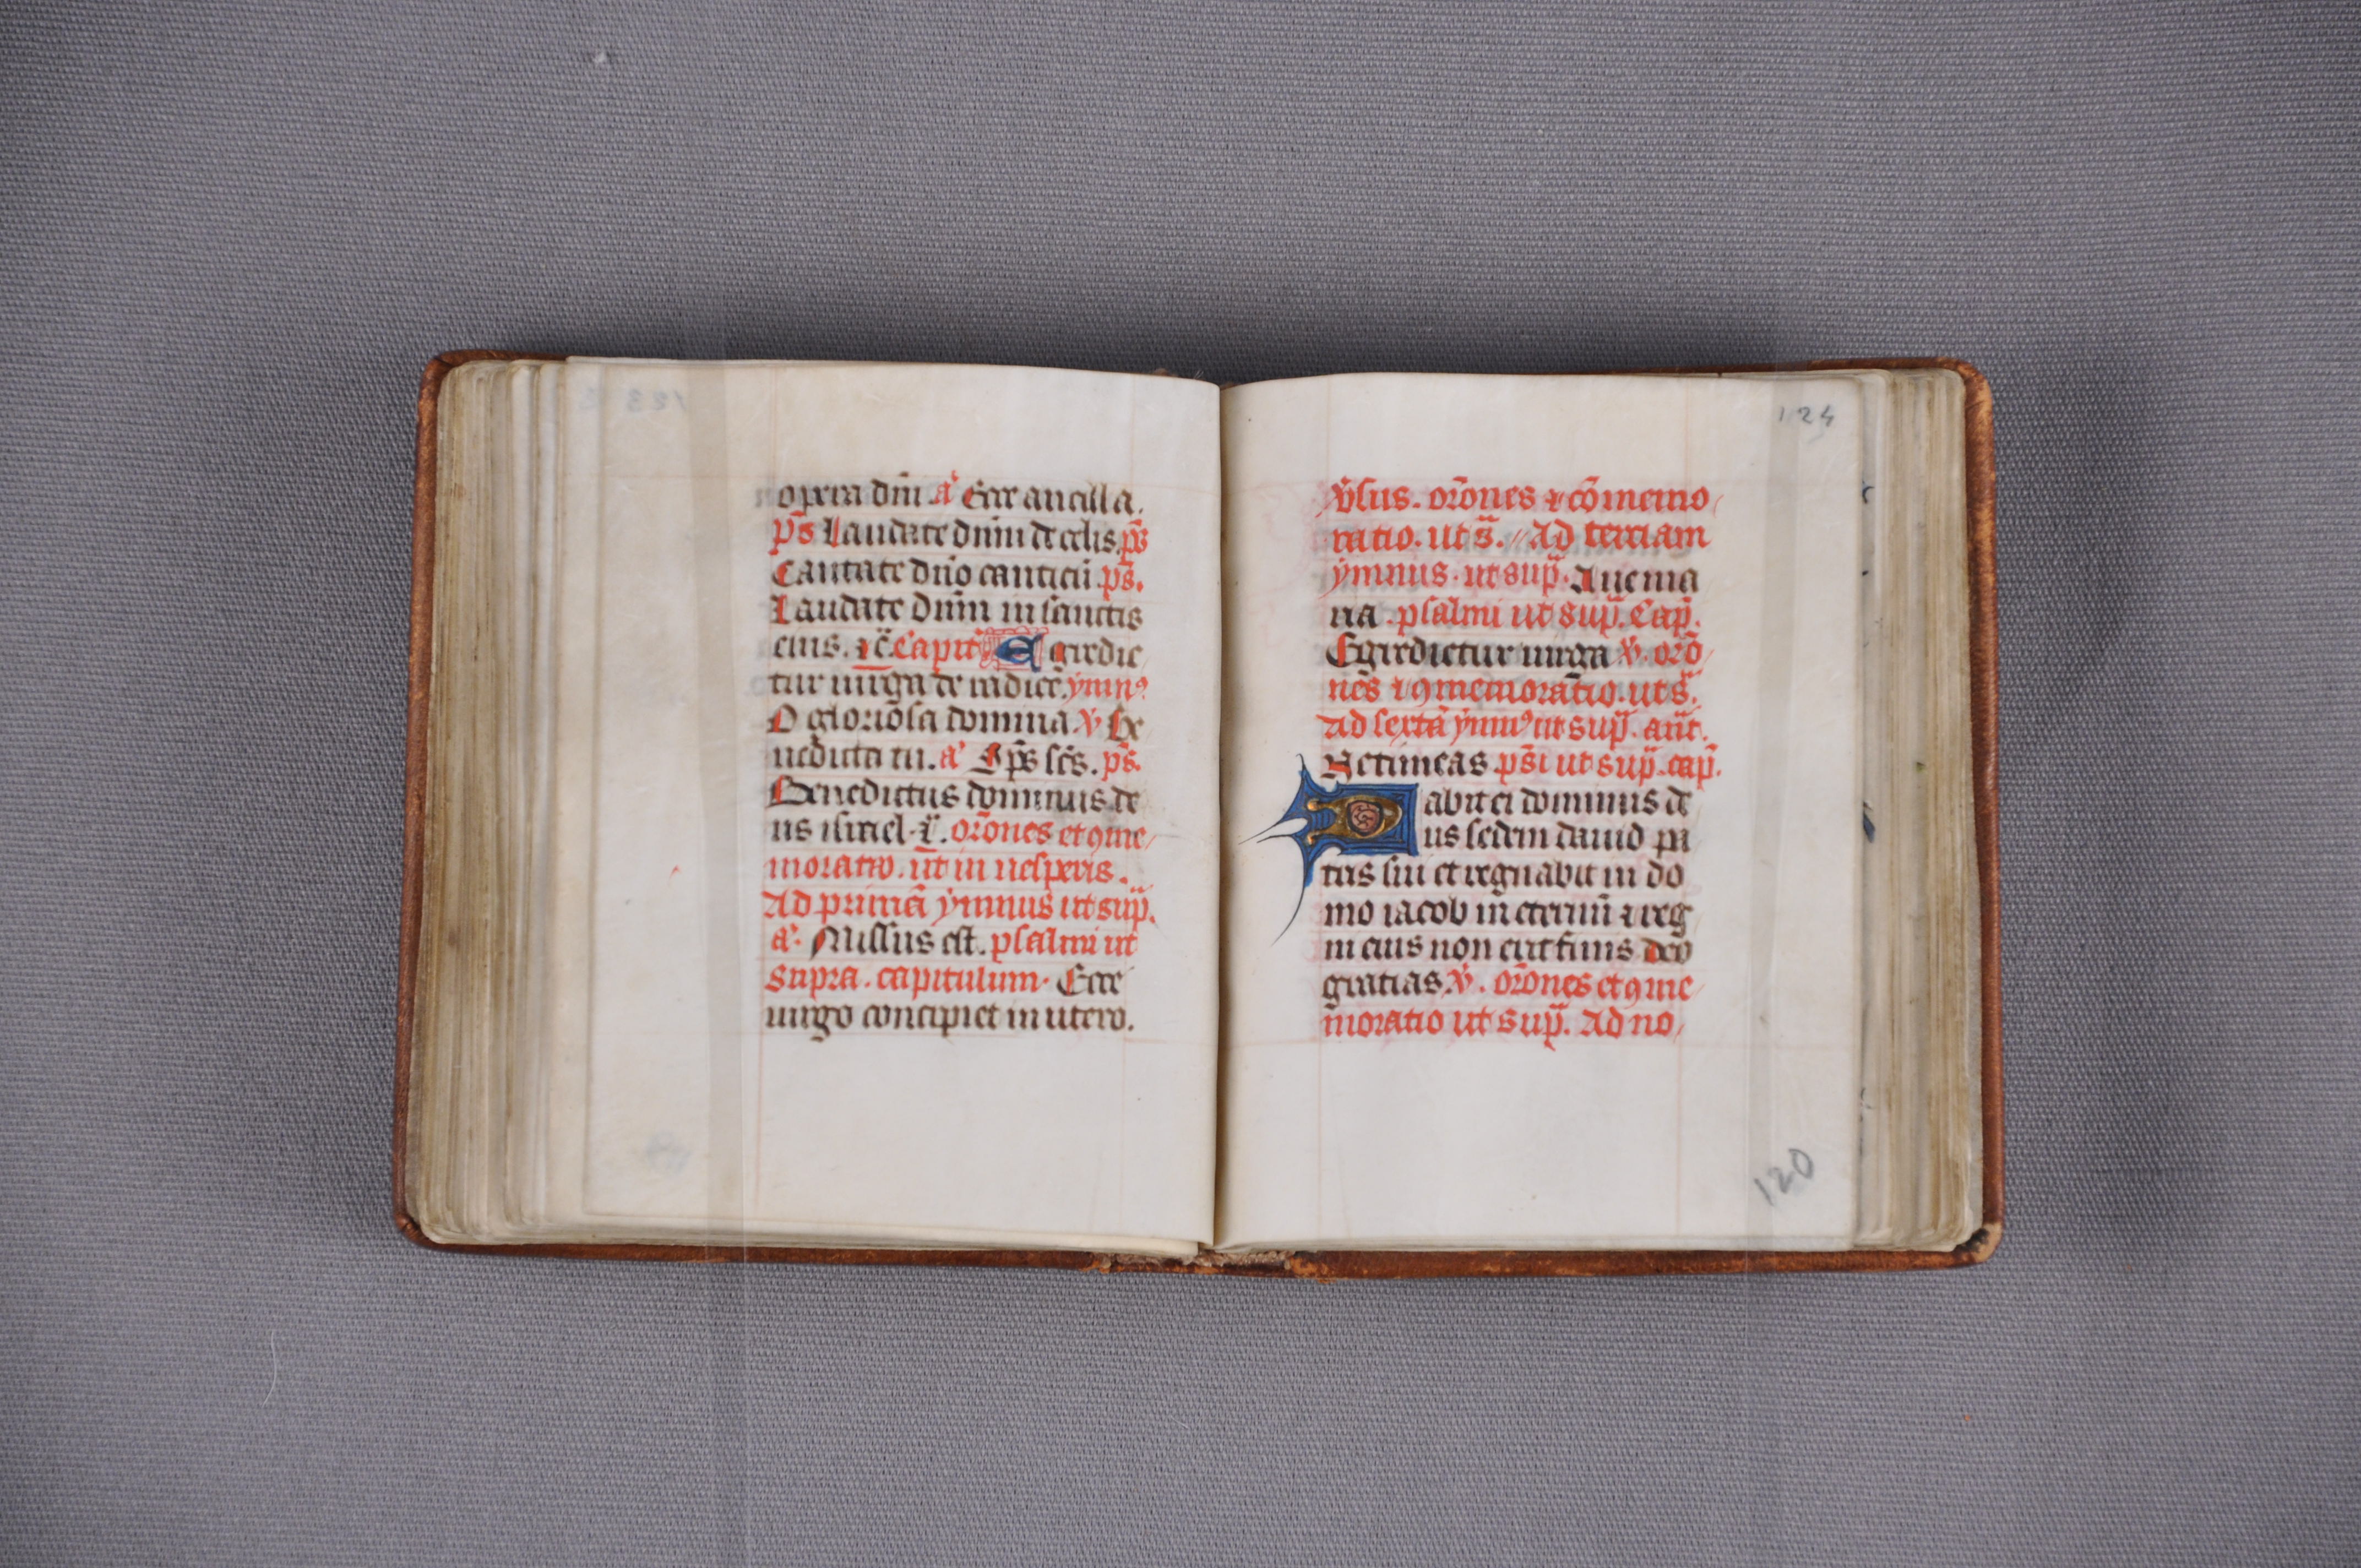 opera dñi a' Ecce ancilla.
p̄s Laudate dñm de celis. p̄s
Cantate dño canticū p̄s.
Laudate dñm in sanctis
eius. ⁊c̄. Capit' Egredie
tur uirga de radice. ymnꝰ
O gloriosa domina ℣ Be
nedicta tu. a' Sp̄s sc̄s. p̄s.
Benedictus dominus de
us israel. ⁊c̄. orōnes et ꝯme
moratio. ut in uesperis.
Ad primā ymnus ut sup̄.
a'. Missus est. psalmi ut
supra. capitulum. Ecce
uirgo concipiet in utero.
124
v̄sus. orōnes ⁊ cōmemo
ratio. ut s̄. Ad terciam
ymnus. ut sup̄. Aue ma
ria. psalmi ut sup̄. Cap̄.
Egredietur uirga ℣. orō
nes ⁊ ꝯmemoratio. ut s̄.
Ad sextā ymnꝰ ut sup̄. ant̄.
Ne timeas. ps̄i ut sup̄. cap̄.
Dabit ei dominus de
us sedem dauid pa
tris sui et regnabit in do
mo iacob in eternū ⁊ reg
ni eius non erit finis deo
gratias ℣. orōnes et ꝯme
moratio ut sup̄. Ad no
120